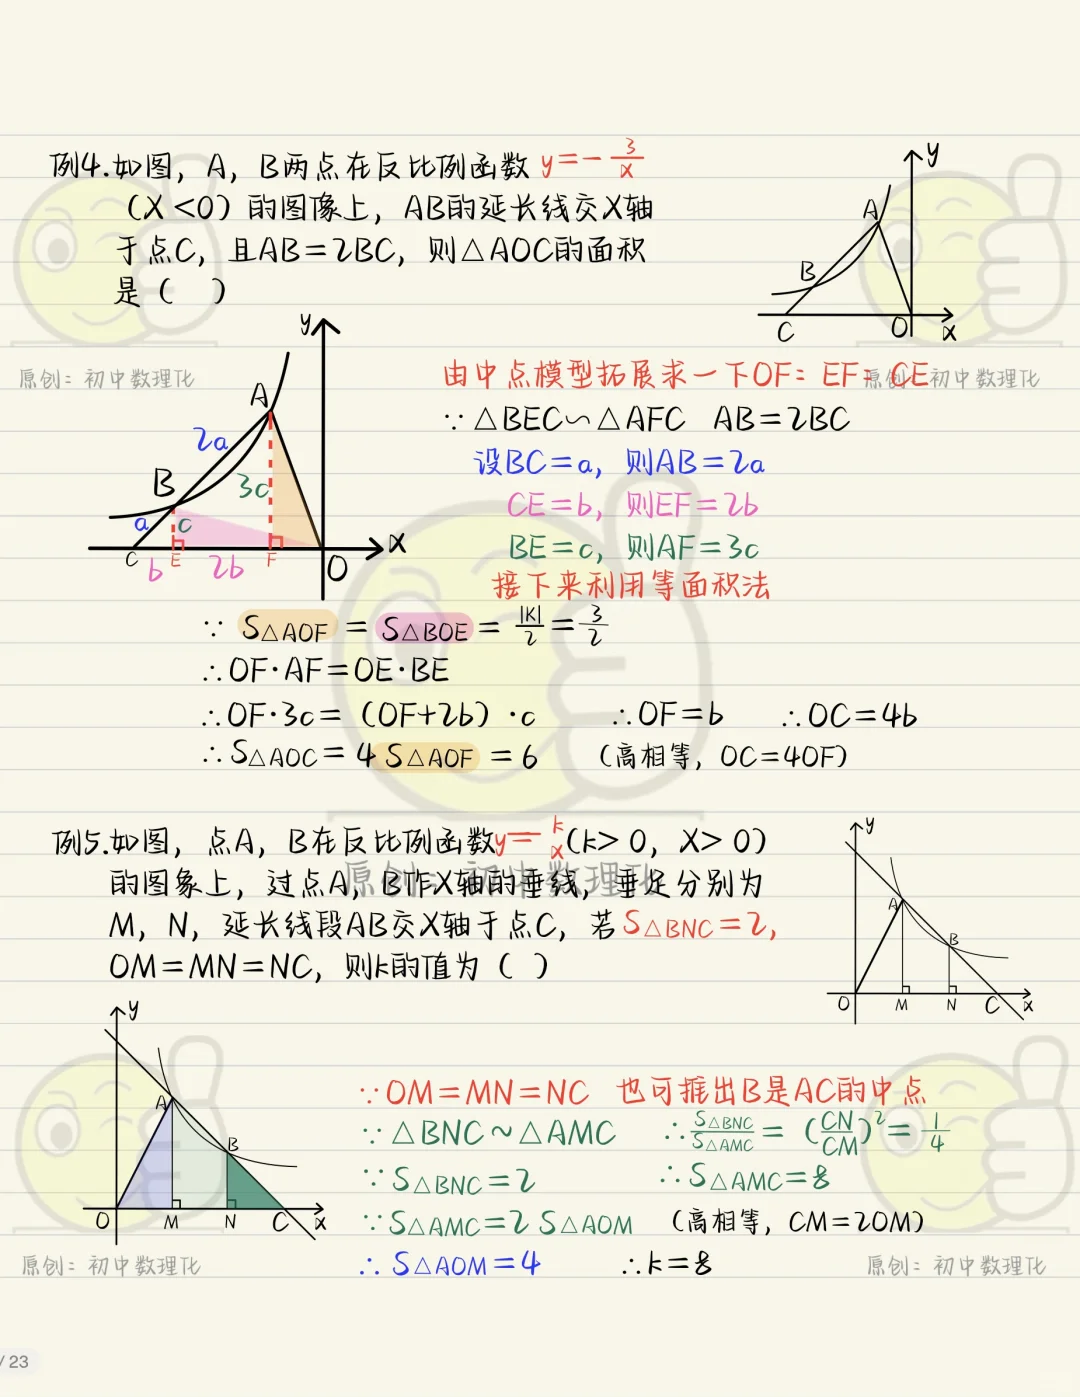 例4.如图，A，B两点在反比例函数 y=-3/x
（X<0）的图像上，AB的延长线交X轴
于点C，且AB=2BC，则△AOC的面积
是（ ）
y
A
B
C
O
x
原创：初中数理化
原创：初中数理化
由中点模型拓展求一下OF=EF=CE
∵△BEC∽△AFC AB=2BC
设BC=a，则AB=2a
CE=b，则EF=2b
BE=c，则AF=3c
接下来利用等面积法
y
A
2a
B
3c
a
c
C
b
E
2b
F
O
x
∵ S△AOF = S△BOE = |K|/2 = 3/2
∴OF·AF=OE·BE
∴OF·3c=（OF+2b）·c ∴OF=b ∴OC=4b
∴S△AOC=4S△AOF=6 （高相等，OC=4OF）
原创：初中数理化
例5.如图，点A，B在反比例函数y=k/x(k>0，X>0)
的图象上，过点A，B作X轴的垂线，垂足分别为
M，N，延长线段AB交X轴于点C，若S△BNC=2，
OM=MN=NC，则k的值为（ ）
y
A
B
O
M
N
C
x
y
A
B
O
M
N
C
x
∵OM=MN=NC 也可推出B是AC的中点
∵△BNC~△AMC ∴S△BNC/S△AMC=(CN/CM)²=1/4
∵S△BNC=2 ∴S△AMC=8
∵S△AMC=2S△AOM （高相等，CM=2OM）
∴S△AOM=4 ∴k=8
原创：初中数理化
原创：初中数理化
/23